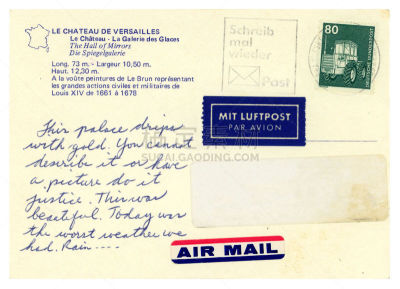 LE CHATEAU DE VERSAILLES
Le Château - La Galerie des Glaces
The Hall of Mirrors
Die Spiegelgalerie
Long. 73 m. - Largeur 10,50 m.
Haut. 12,30 m.
A la voûte peintures de Le Brun représentant
les grandes actions civiles et militaires de
Louis XIV de 1661 à 1678
Schreib
mal
wieder
Post
80
DEUTSCHE BUNDESPOST
MIT LUFTPOST
PAR AVION
This palace drips
with gold. You cannot
describe it or have
a picture do it
justice. This was
beautiful. Today was
the worst weather we
had. Rain ----
AIR MAIL
SUCAI.GAODING.COM